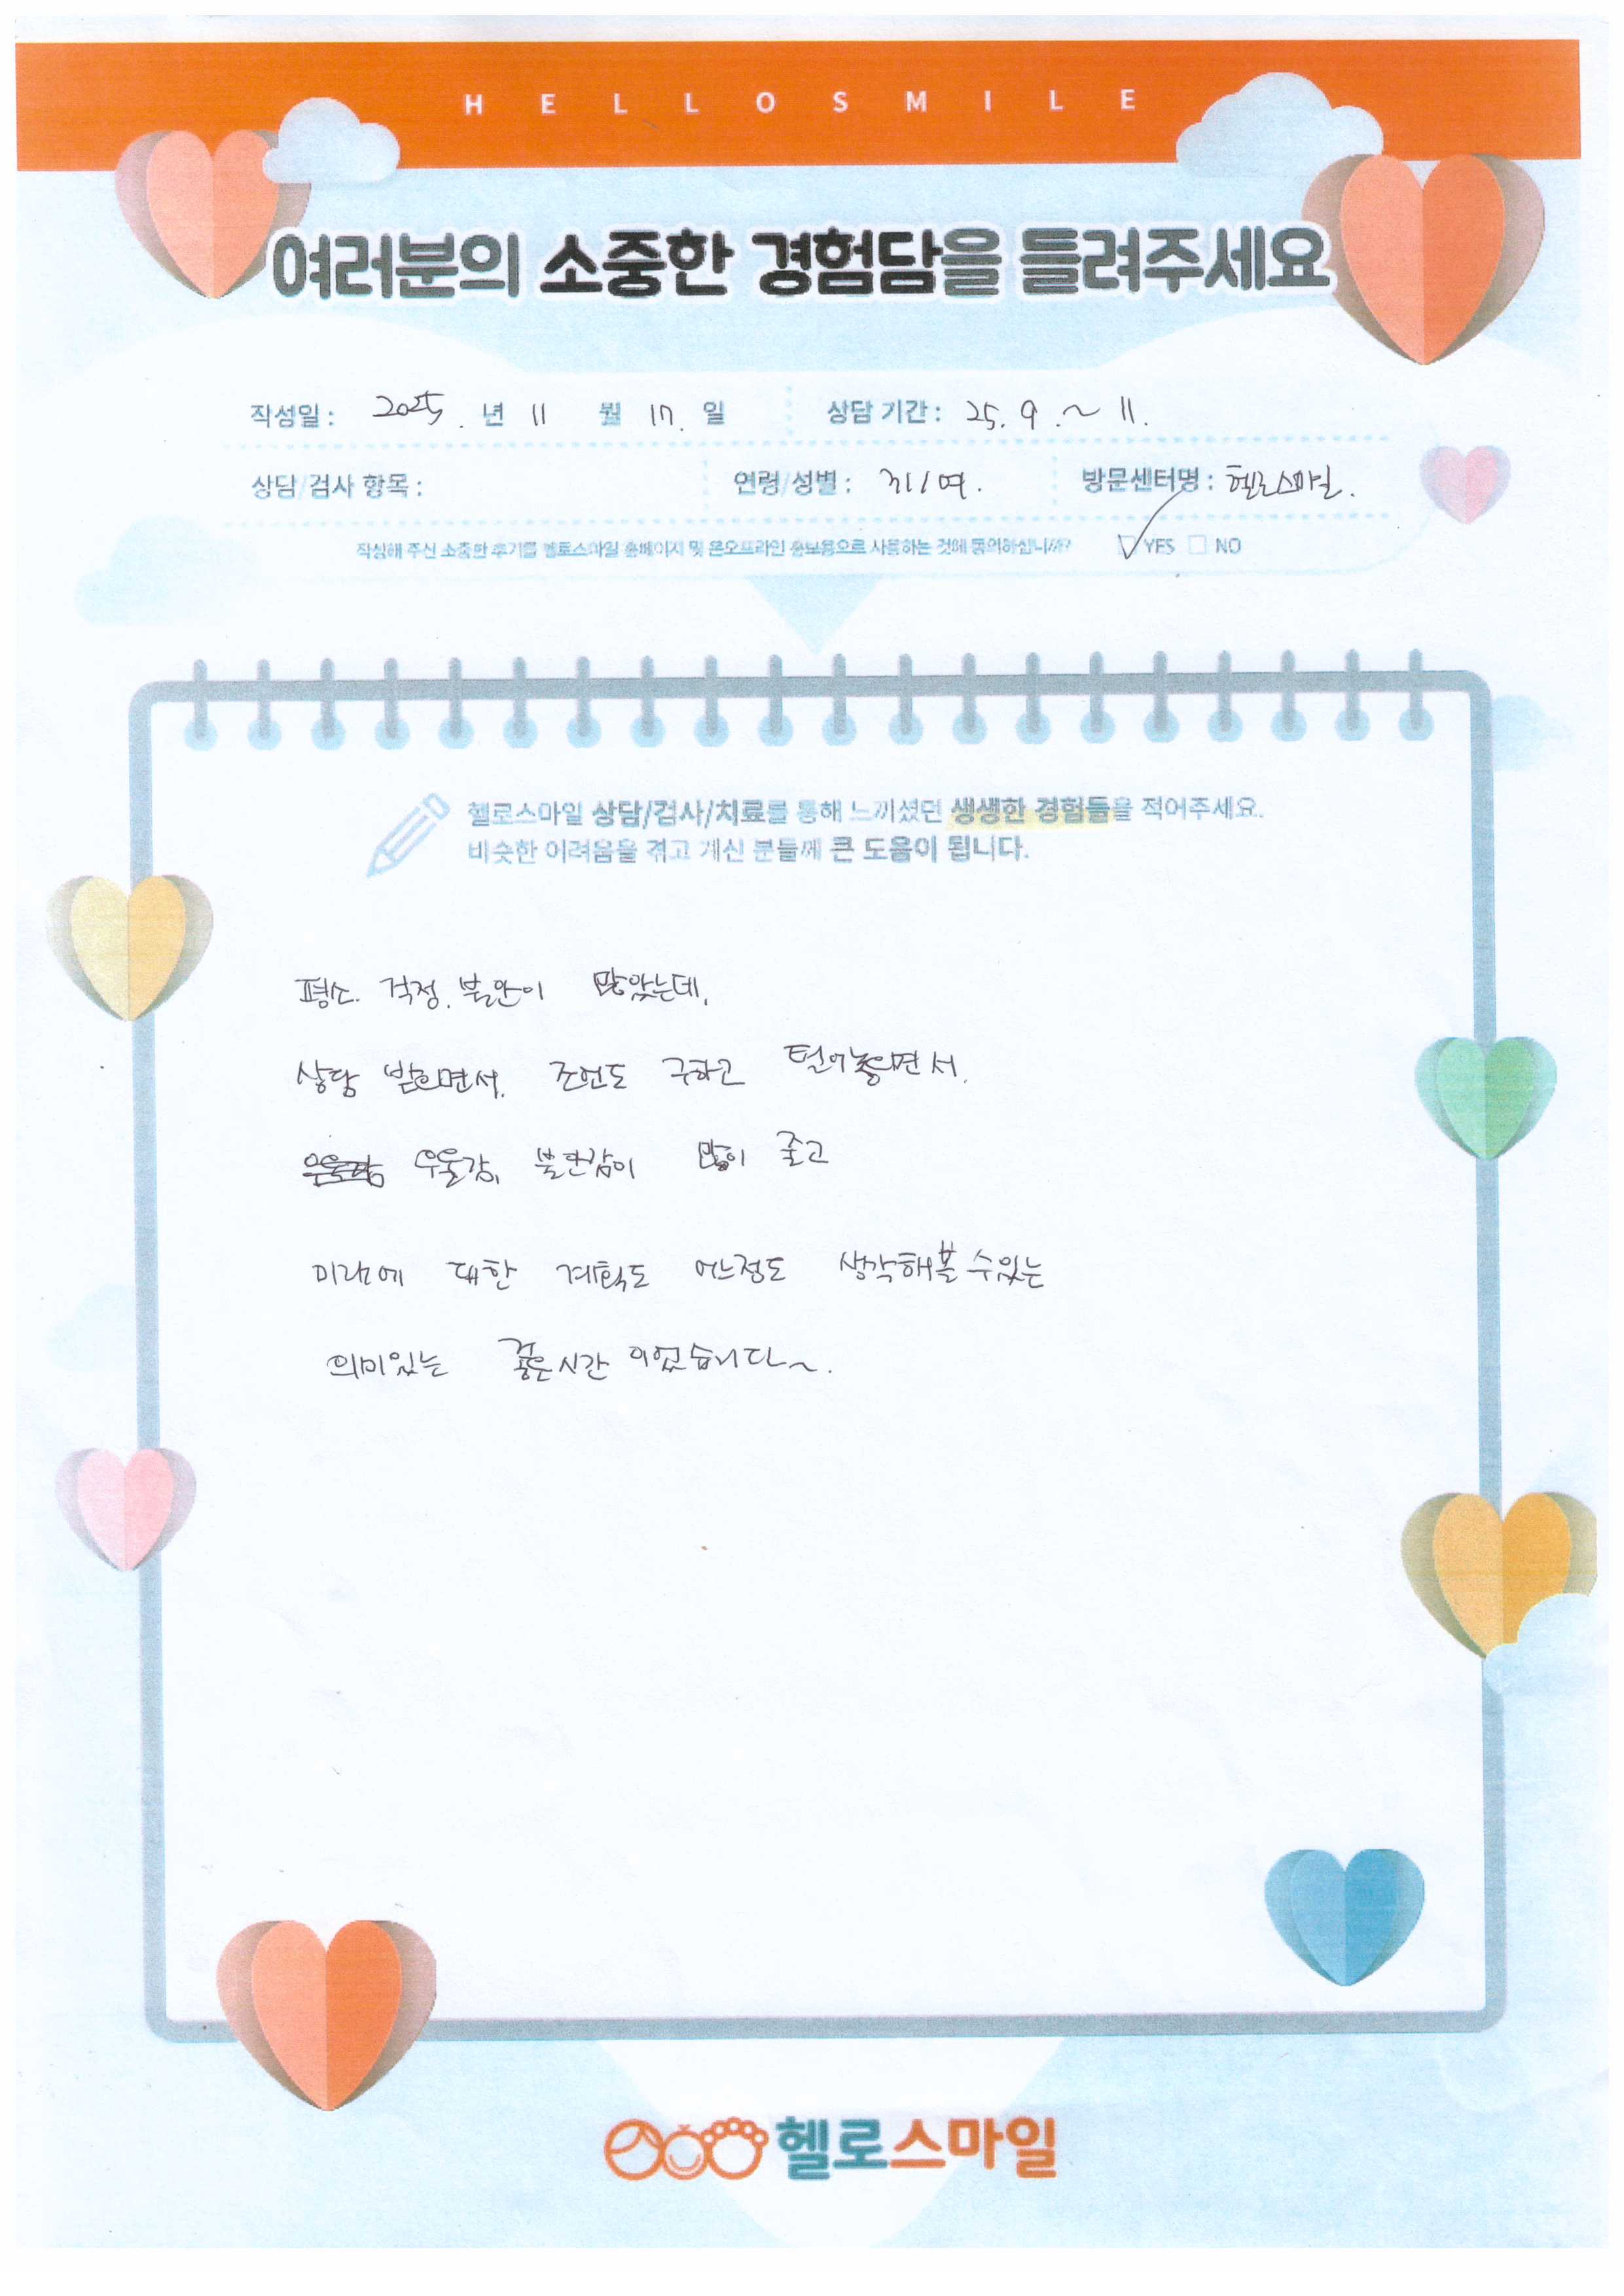 HELLOSMILE
여러분의 소중한 경험담을 들려주세요
작성일 : 2025. 년 11 월 17. 일 상담 기간 : 25. 9. ~ 11.
상담/검사 항목 : 연령/성별 : 31/여. 방문센터명 : 헬로스마일.
작성해 주신 소중한 후기를 헬로스마일 홈페이지 및 온오프라인 홍보용으로 사용하는 것에 동의하십니까? YES NO
헬로스마일 상담/검사/치료를 통해 느끼셨던 생생한 경험들을 적어주세요.
비슷한 어려움을 겪고 계신 분들께 큰 도움이 됩니다.
평소. 걱정, 불안이 많았는데,
상담 받으면서, 조언도 구하고 털어놓으면서,
우울감, 불안감이 많이 줄고
미래에 대한 계획도 어느정도 생각해볼 수 있는
의미있는 좋은 시간 이었습니다~.
헬로스마일